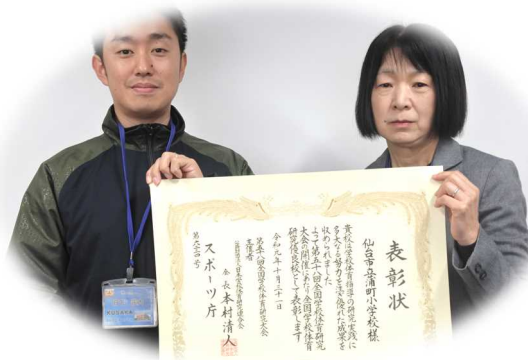 表彰状
仙台市立蒲町小学校様
貴校は学校体育指導の研究実践に
多大なる努力を注ぎ優れた成果を
収められました
よって第五十八回全国学校体育研究
大会の開催にあたり全国学校体育
研究優良校として表彰します
令和元年十月三十一日
第五十八回全国学校体育研究大会
主催者
会長 本村清人
スポーツ庁